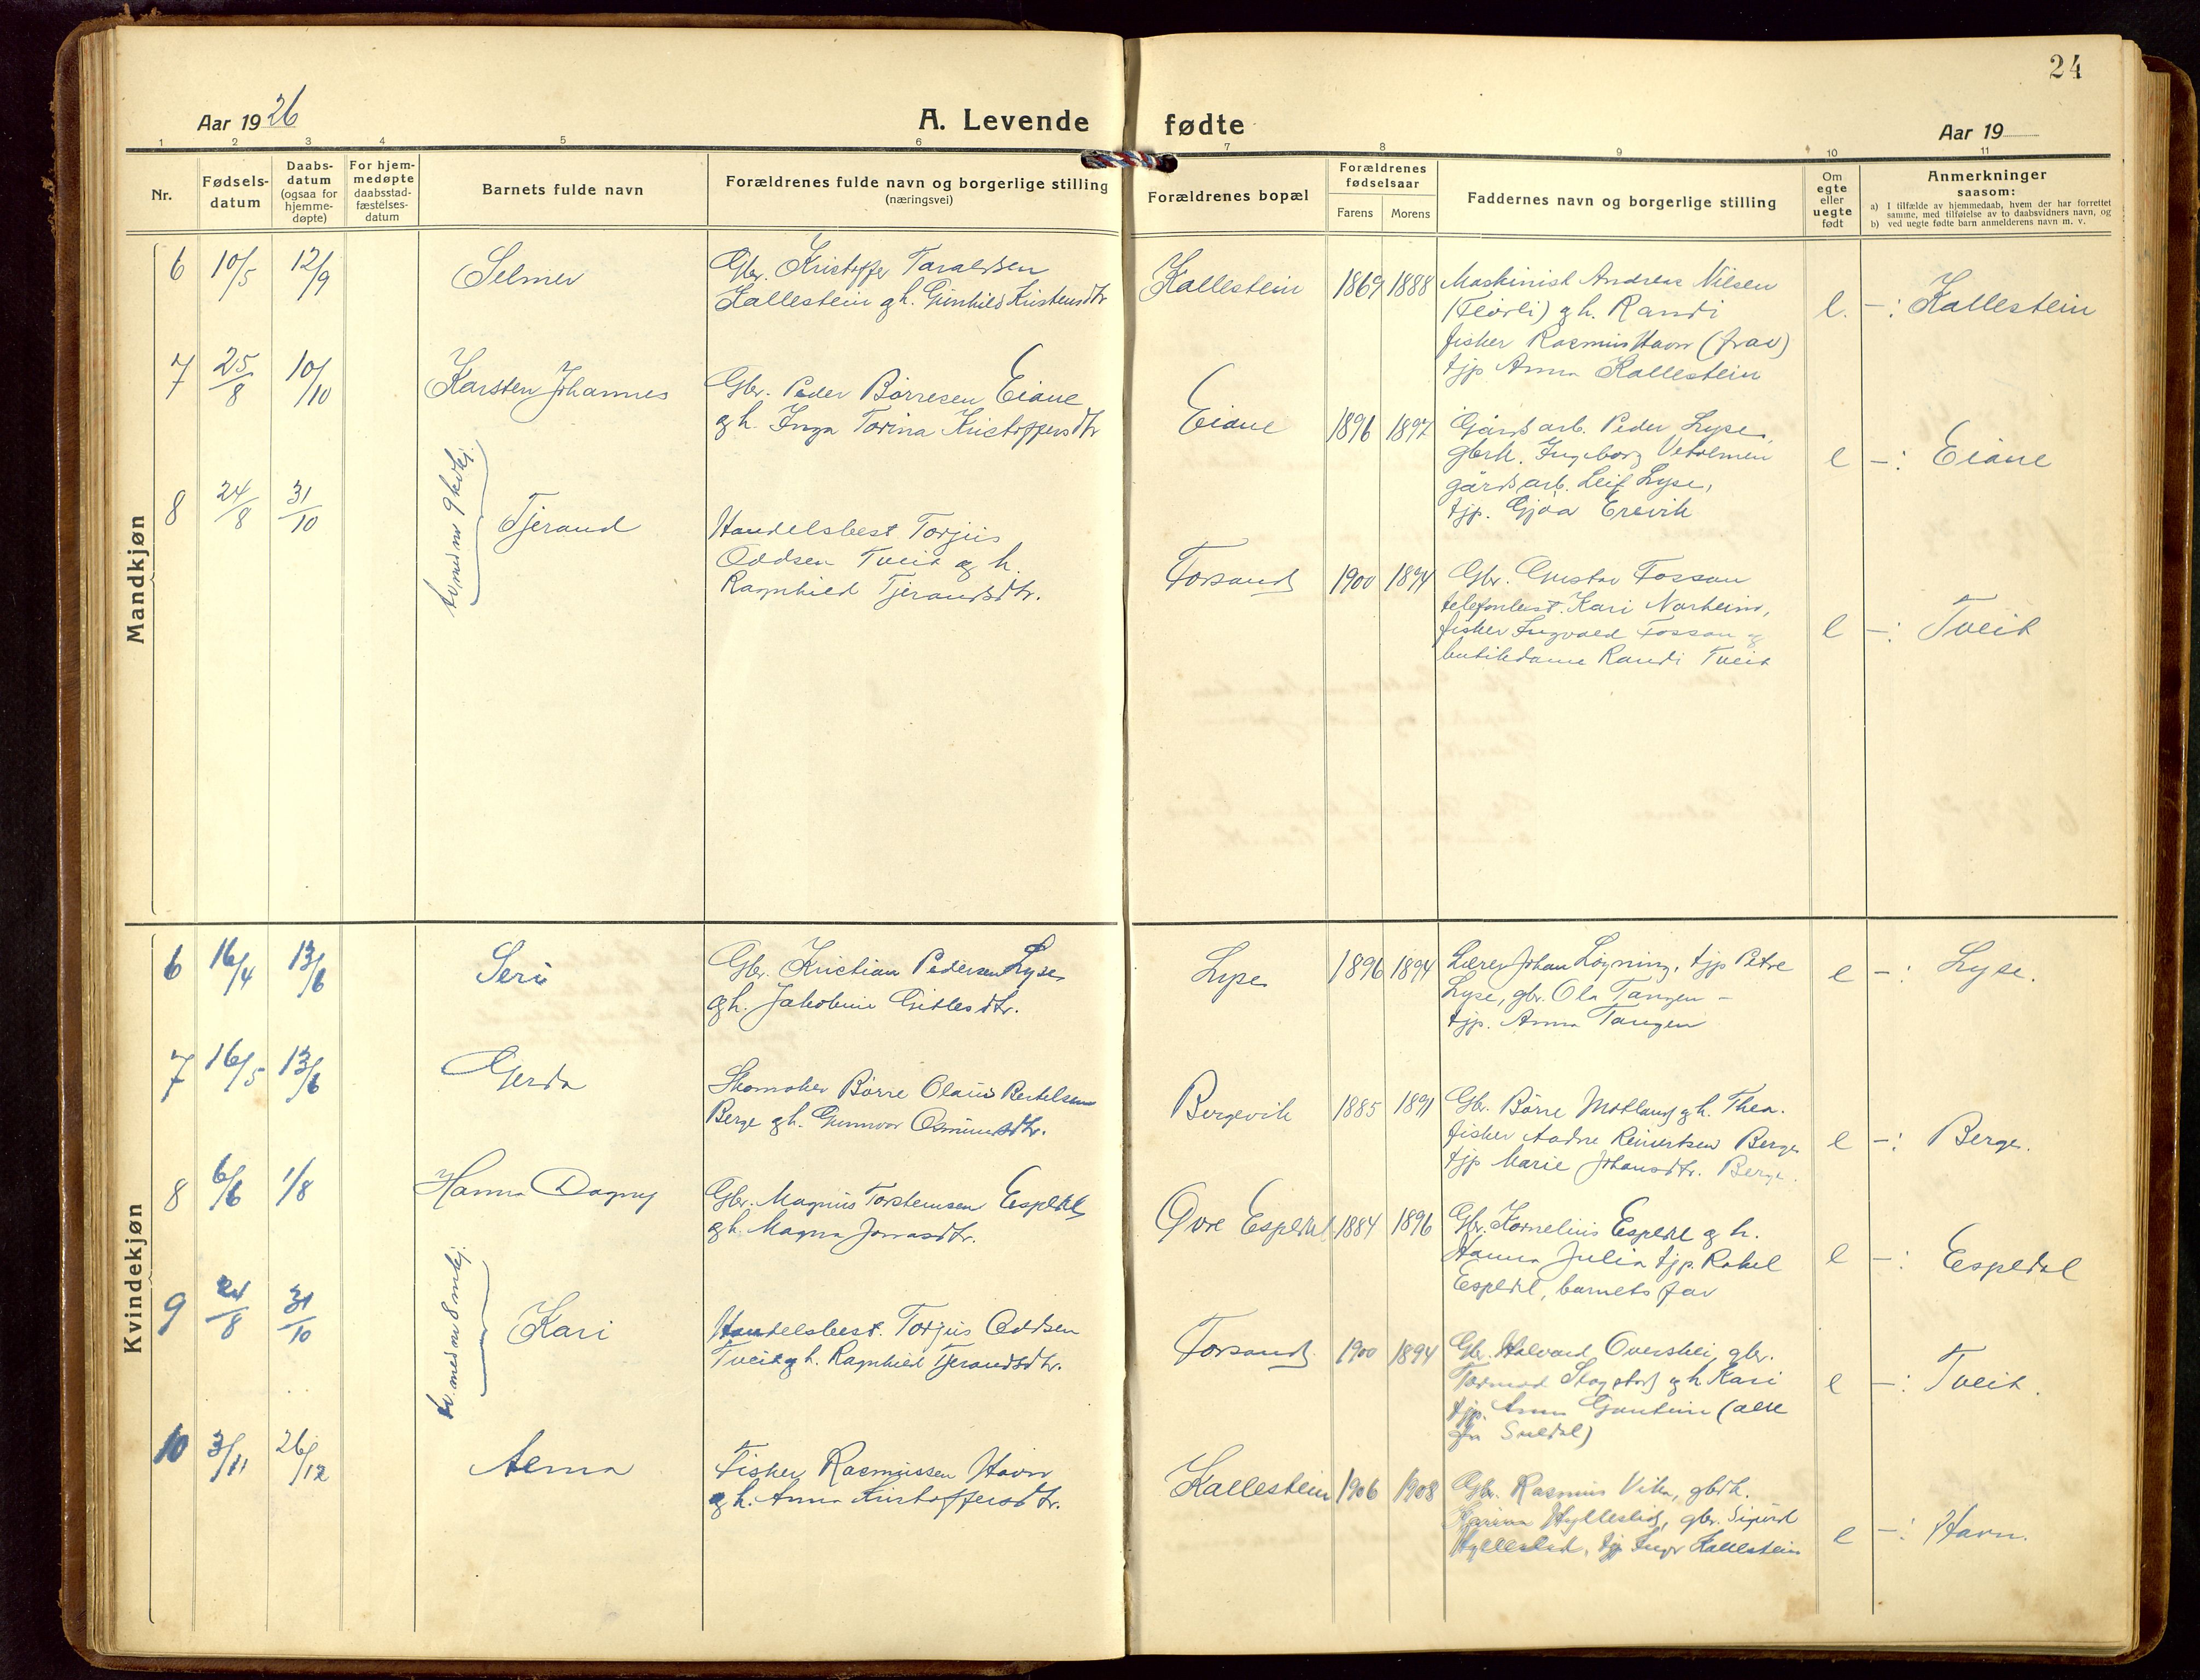 24
Aar 1926
A. Levende fødte
Aar 19
1 2 3 4 5 6 7 8 9 10 11
Nr.
Fødsels-
datum
Daabs-
datum
(ogsaa for
hjemme-
døpte)
For hjem-
medøpte
daabsstad-
fæstelses-
datum
Barnets fulde navn
Forældrenes fulde navn og borgerlige stilling
(næringsvei)
Forældrenes bopæl
Forældrenes
fødselsaar
Farens Morens
Faddernes navn og borgerlige stilling
Om
egte
eller
uegte
født
Anmerkninger
saasom:
a) I tilfælde av hjemmedaab, hvem der har forrettet
samme, med tilføielse av to daabsvidners navn, og
b) ved uegte fødte barn anmelderens navn m. v.
Mandkjøn
6 10/5 12/9 Selmer
Gbr. Kristoffer Taraldsen
Kallestein og h. Gunhild Kristensdtr
Kallestein 1869 1888
Maskinist Andreas Nilsen
(Fløirli) og h. Randi
fisker Rasmus Havn (frav)
tjp Anna Kallestein
e. -: Kallestein
7 25/8 10/10 Karsten Johannes
Gbr. Peder Børresen Eiane
og h. Inga Torina Kristoffersdtr
Eiane 1896 1897
Gårdsarb. Peder Lyse,
gbrk. Ingeborg Vetolmen
gårdsarb. Leif Lyse,
tjp. Gjøa Erevik
e -: Eiane
8 24/8 31/10 tv. med nr 9 kvkj. Tjerand
Handelsbest Torjus
Oddsen Tveit og h.
Ragnhild Tjerandsdtr.
Forsand 1900 1894
Gbr. Gustav Fossan
telefonbest. Kari Norheim,
fisker Ingvald Fossan og
butikdame Randi Tveit
e -: Tveit
Kvindekjøn
6 16/4 13/6 Seri
Gbr. Kristian Pedersen Lyse
og h. Jakobine Gitlesdtr.
Lyse 1896 1894
Lærer Johan Løgning, tjp Petre
Lyse, gbr. Ola Tangen -
tjp. Anna Tangen
e -: Lyse.
7 16/5 13/6 Gerda
Skomaker Børre Olaus Bertelsen
Berge og h. Gunnvor Osmundsdtr.
Bergevik 1885 1891
Gbr. Børre Motland og h. Thea.
fisker Aadne Reinertsen Berge
tjp Marie Johansdtr. Berge.
e -: Berge.
8 6/6 1/8 Hanna Dagny
Gbr. Magnus Torstensen Espedal
og h. Magna Jonasdtr.
Øvre Espedal 1884 1896
Gbr. Kornelius Espedal og h.
Hanna Julia tjp. Rakel
Espedal, barnets far
e -: Espedal
9 24/8 31/10 tv. med nr 8 mkj. Kari
Handelsbest. Torjus Oddsen
Tveit og h. Ragnhild Tjerandsdtr.
Forsand 1900 1894
Gbr. Halvard Overskei, gbr.
Tormod og h Kari
tjp. Anna Gautun (alle
fra Suldal)
e -: Tveit.
10 3/11 26/12 Alma
Fisker Rasmussen Havn
og h. Anna Kristoffersdtr.
Kallestein 1906 1908
Gbr. Rasmus Vika, gbrk.
Karina Hyllestad, gbr. Sigurd
Hyllestad, tjp Inga Kallestein
e -: Havn.